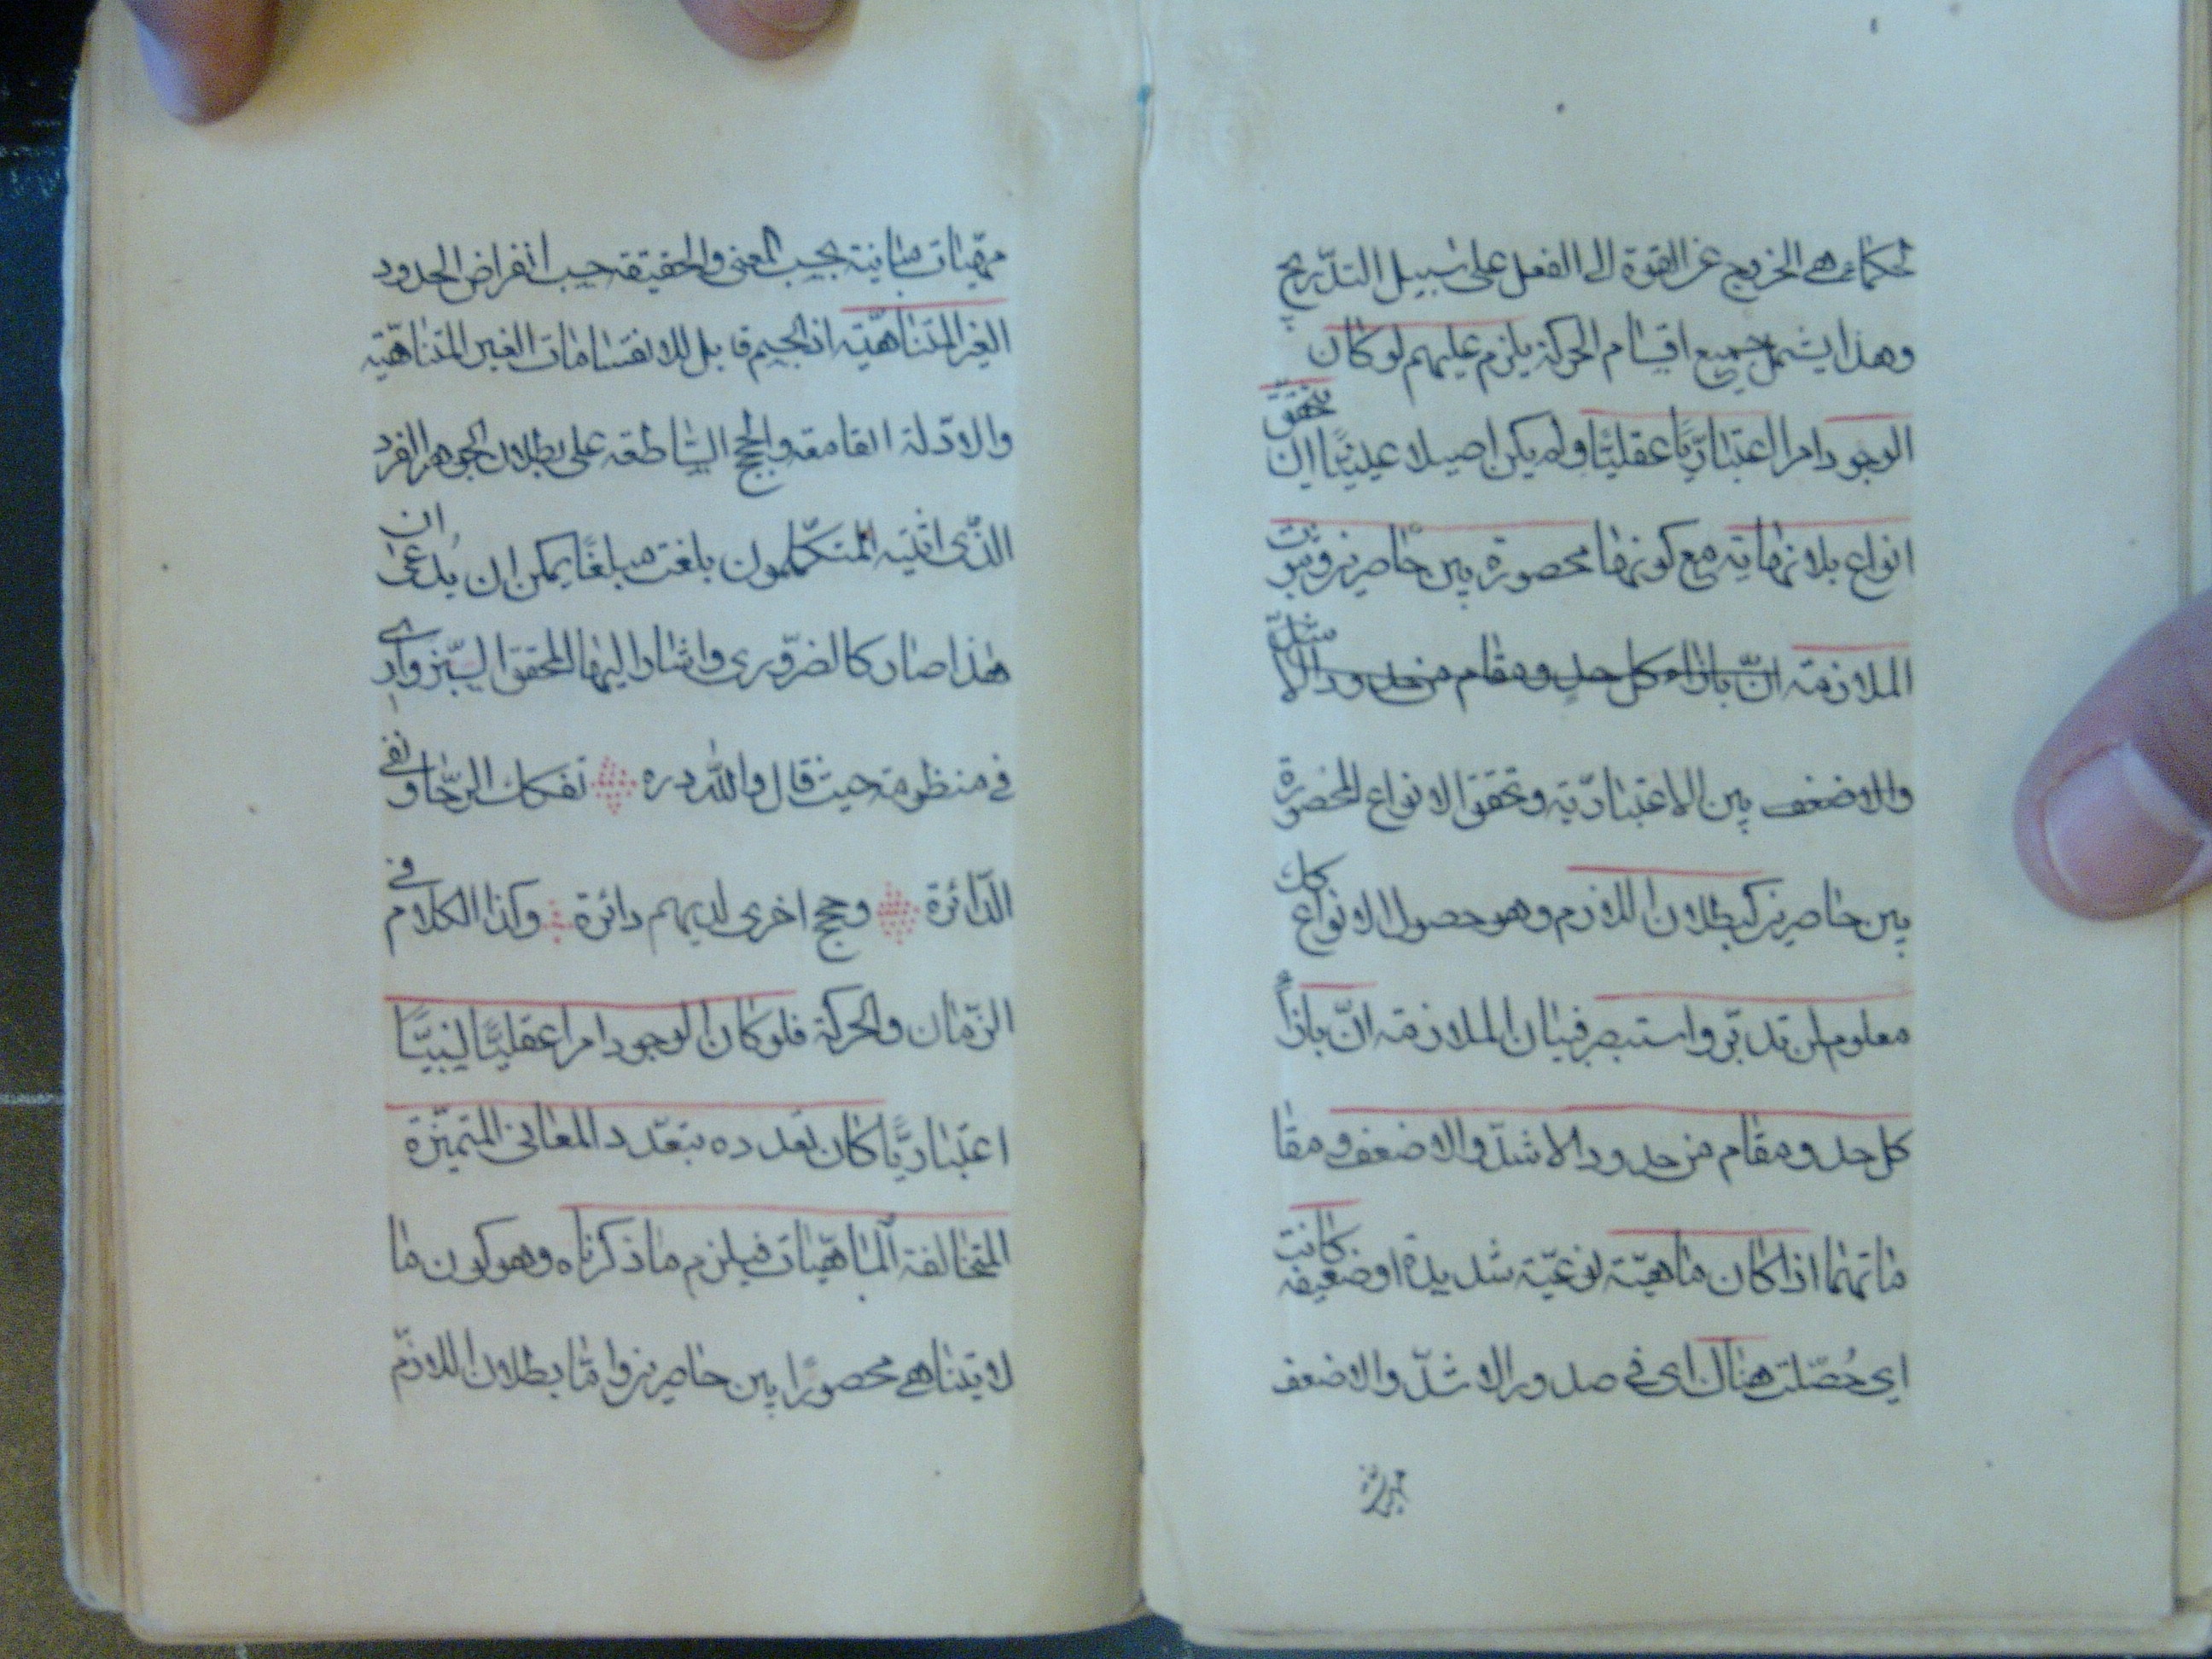 لحكماء هي الخروج عن القوة الى الفعل على سبيل التدّريج
وهذا يشمل جميع اقسام الحركة يلزم عليهم لو كان
الوجود امرا اعتباريّاً عقليّاً ولم يكن اصيلا عينيّاً ان يتحقق
انواع بلا نهاية مع كونها محصورة بين حاصرين وثبوت
الملازمة انّ بازاء كل حد ومقام من حدود الا مثلة
والاضعف بين الاعتباريّة وتحقق الانواع المحصورة
بين حاصرين كبطلان اللازم وهو حصول الانواع كك
معلوم لمن تدبّر واستبصر فبيان الملازمة انّ بازاء
كل حد ومقام من حدود الاشدّ والاضعف ومقا
ماتهما اذا كان ماهيّة نوعيّة شديدة كانت اوضعيفه
اي حُصّلت هناك اى فى صدور الاشدّ والاضعف
مهيّات متباينة بحسب المعنى والحقيقه حسب انفراض الحدود
الغير المتناهيّه اذ الجسم قابل للانقسامات الغير المتناهيّه
والادّلة القامعه والحجج الساطعه على بطلان الجوهر الفرد
الذّى اثبته المتكلّمون بلغت مبلغًا يمكن ان يُدعى ان
هذا صار كالضرّورى واشار اليها المحقق السبّزوارى
فى منظومته حيث قال ولله دره تفكك الرّحا ونفى
الدّائرة وحجج اخرى لديهم دائرة وكذا الكلام فى
الزّمان والحركة فلو كان الوجود امرا عقليّاً نسبيّاً
اعتباريّاً كان تعدده بتعدّد المعانى المتميّزة
المتخالفة الماهيّات فيلزم ما ذكرناه وهو كون ما
لا يتناهى محصورًا بين حاصرين وامّا بطلان اللازم